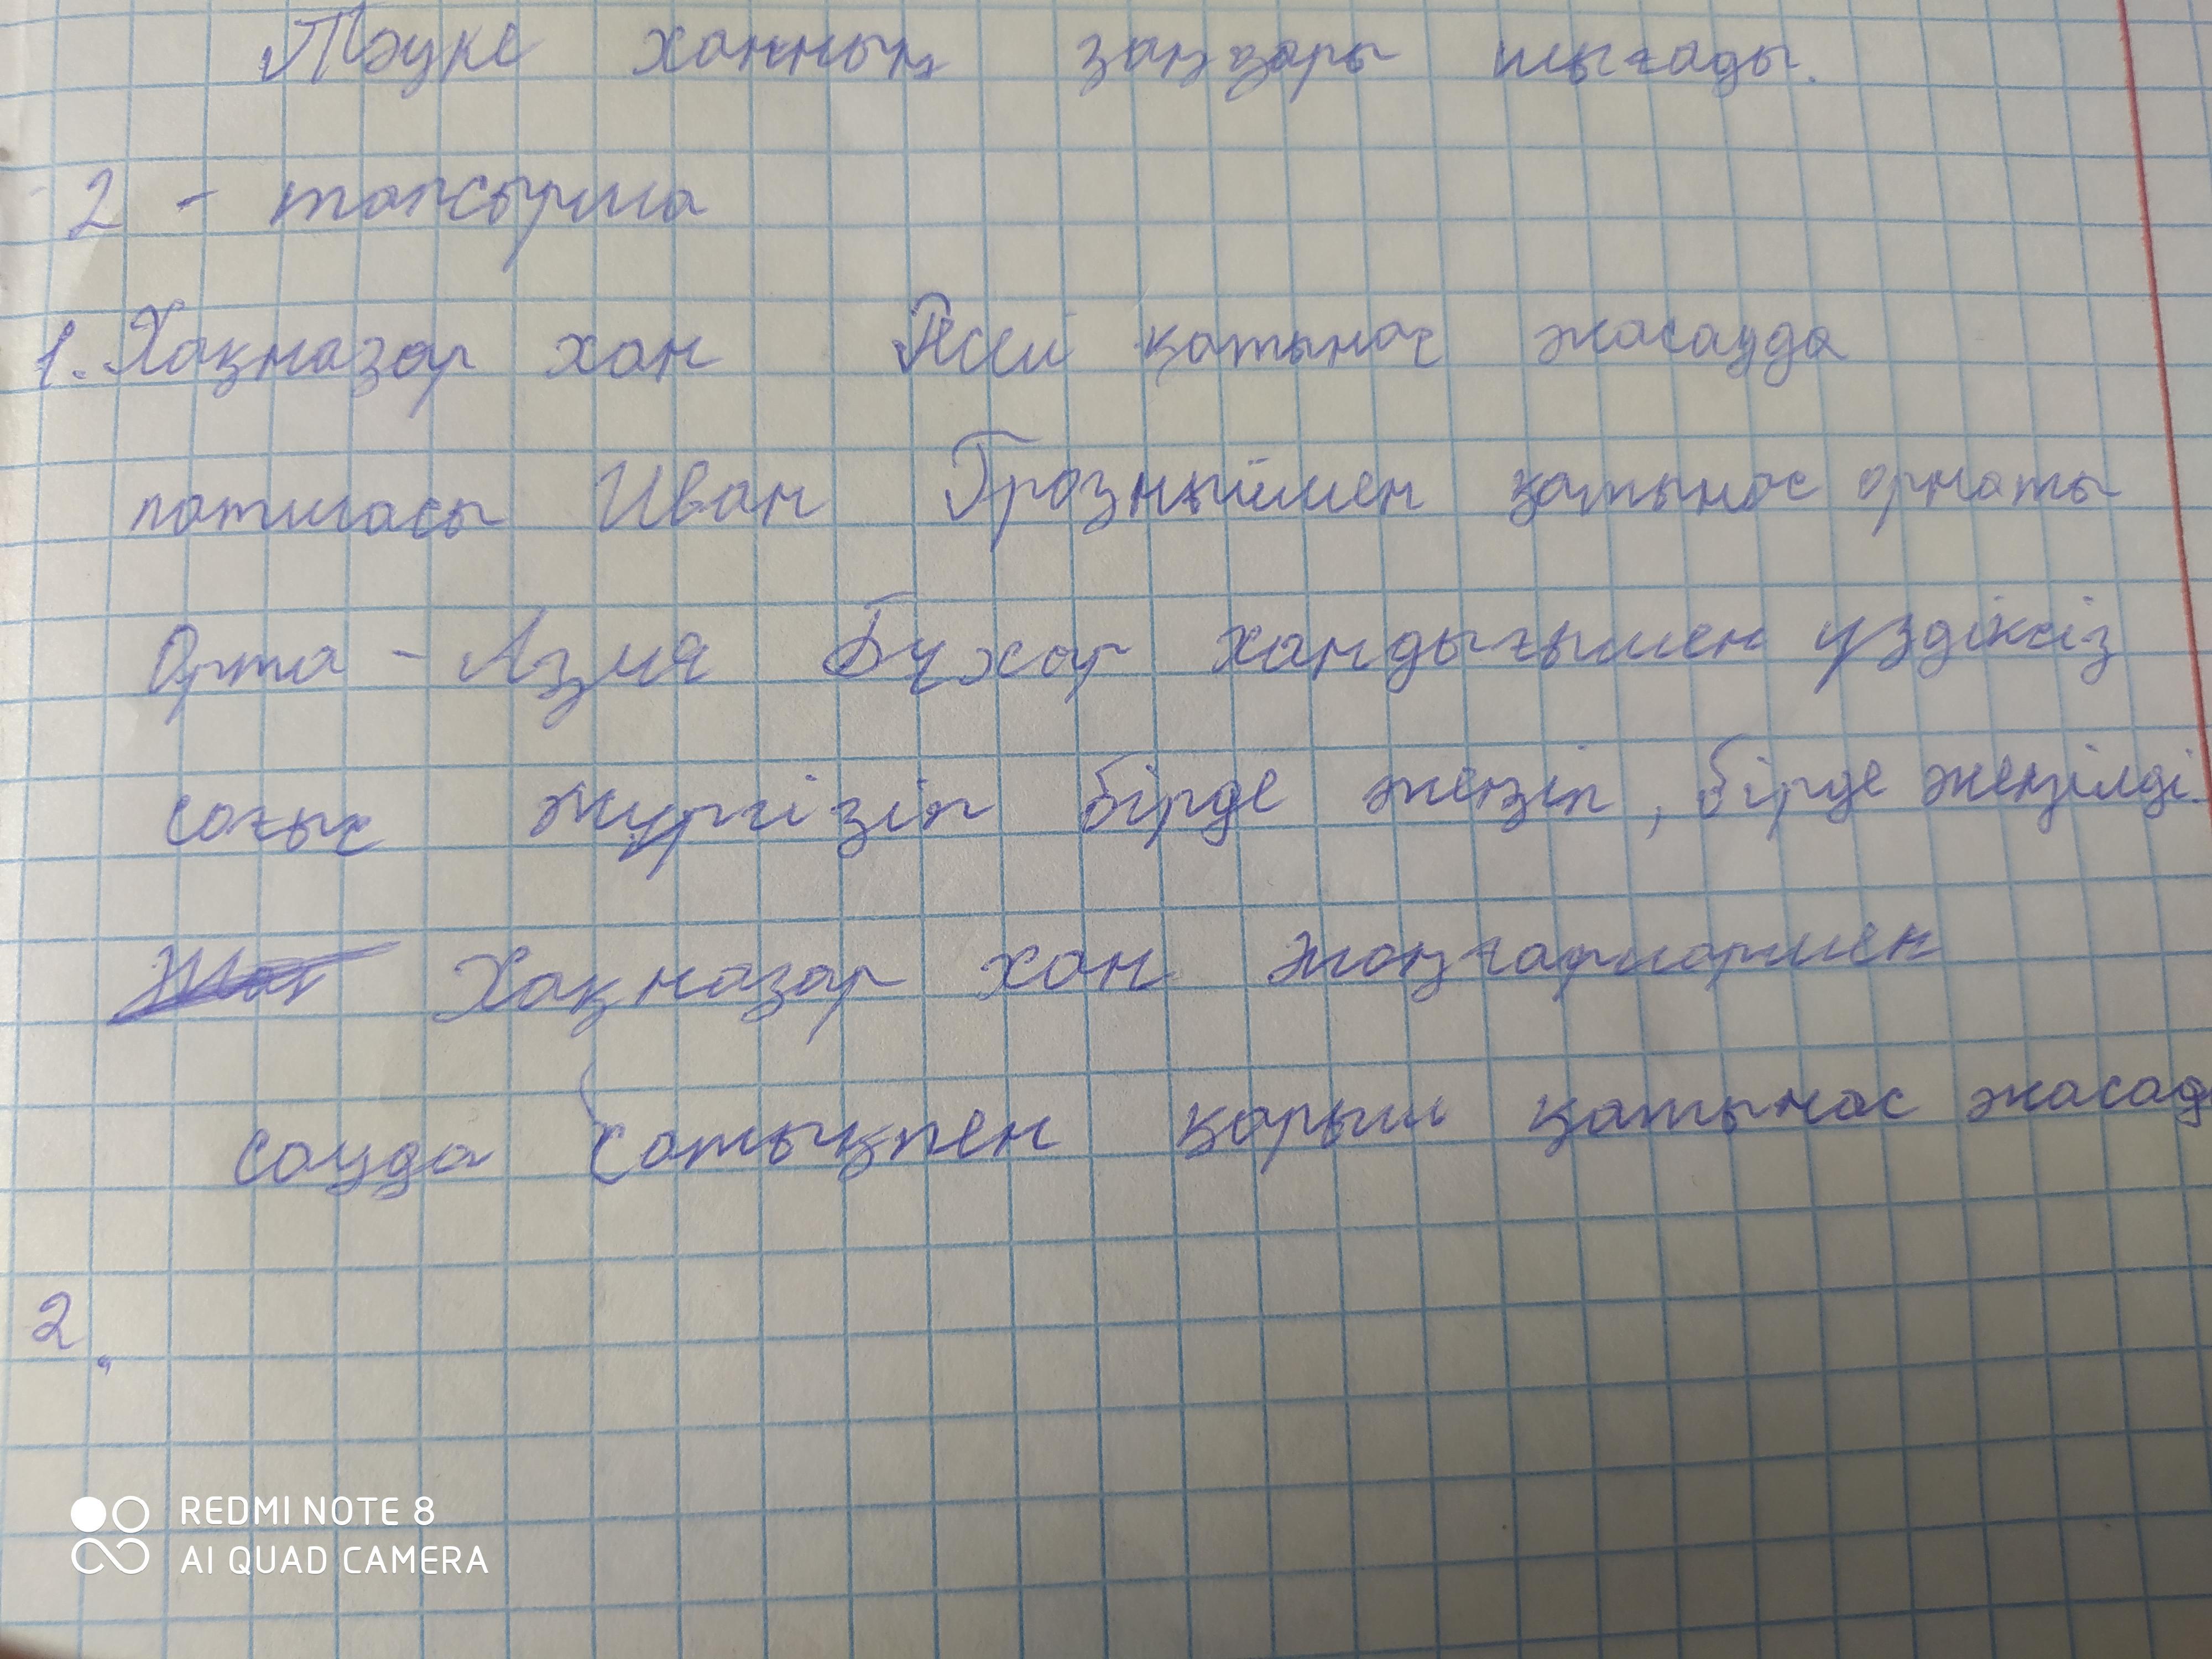 Тәуке ханның заңдары шығады.
2 - тапсырма
1. Хақназар хан қатынас жасауда
патшасы Иван Грозныймен қатынас орнаты
Орта - Азия Бұхар хандығымен үздіксіз
соғыс жүргізіп бірде жеңіп, бірде жеңілді.
Хақназар хан жоңғарлармен
сауда сатықпен қарым қатынас жасад
2.
REDMI NOTE 8
AI QUAD CAMERA